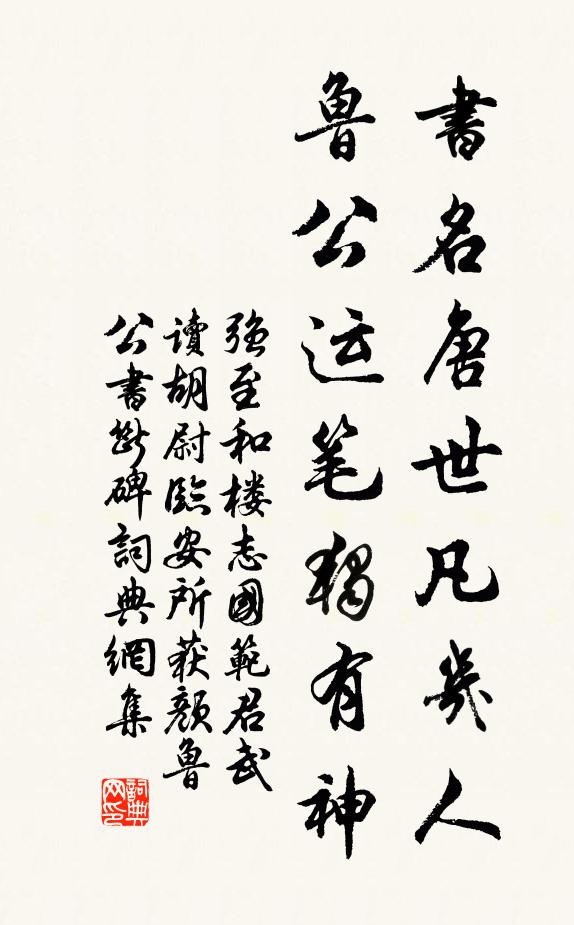 書名唐世凡幾人
魯公运笔獨有神
强至和楼志國範君武
讀胡尉臨安所获顏魯
公書斷碑詞典網集
詞典
网印